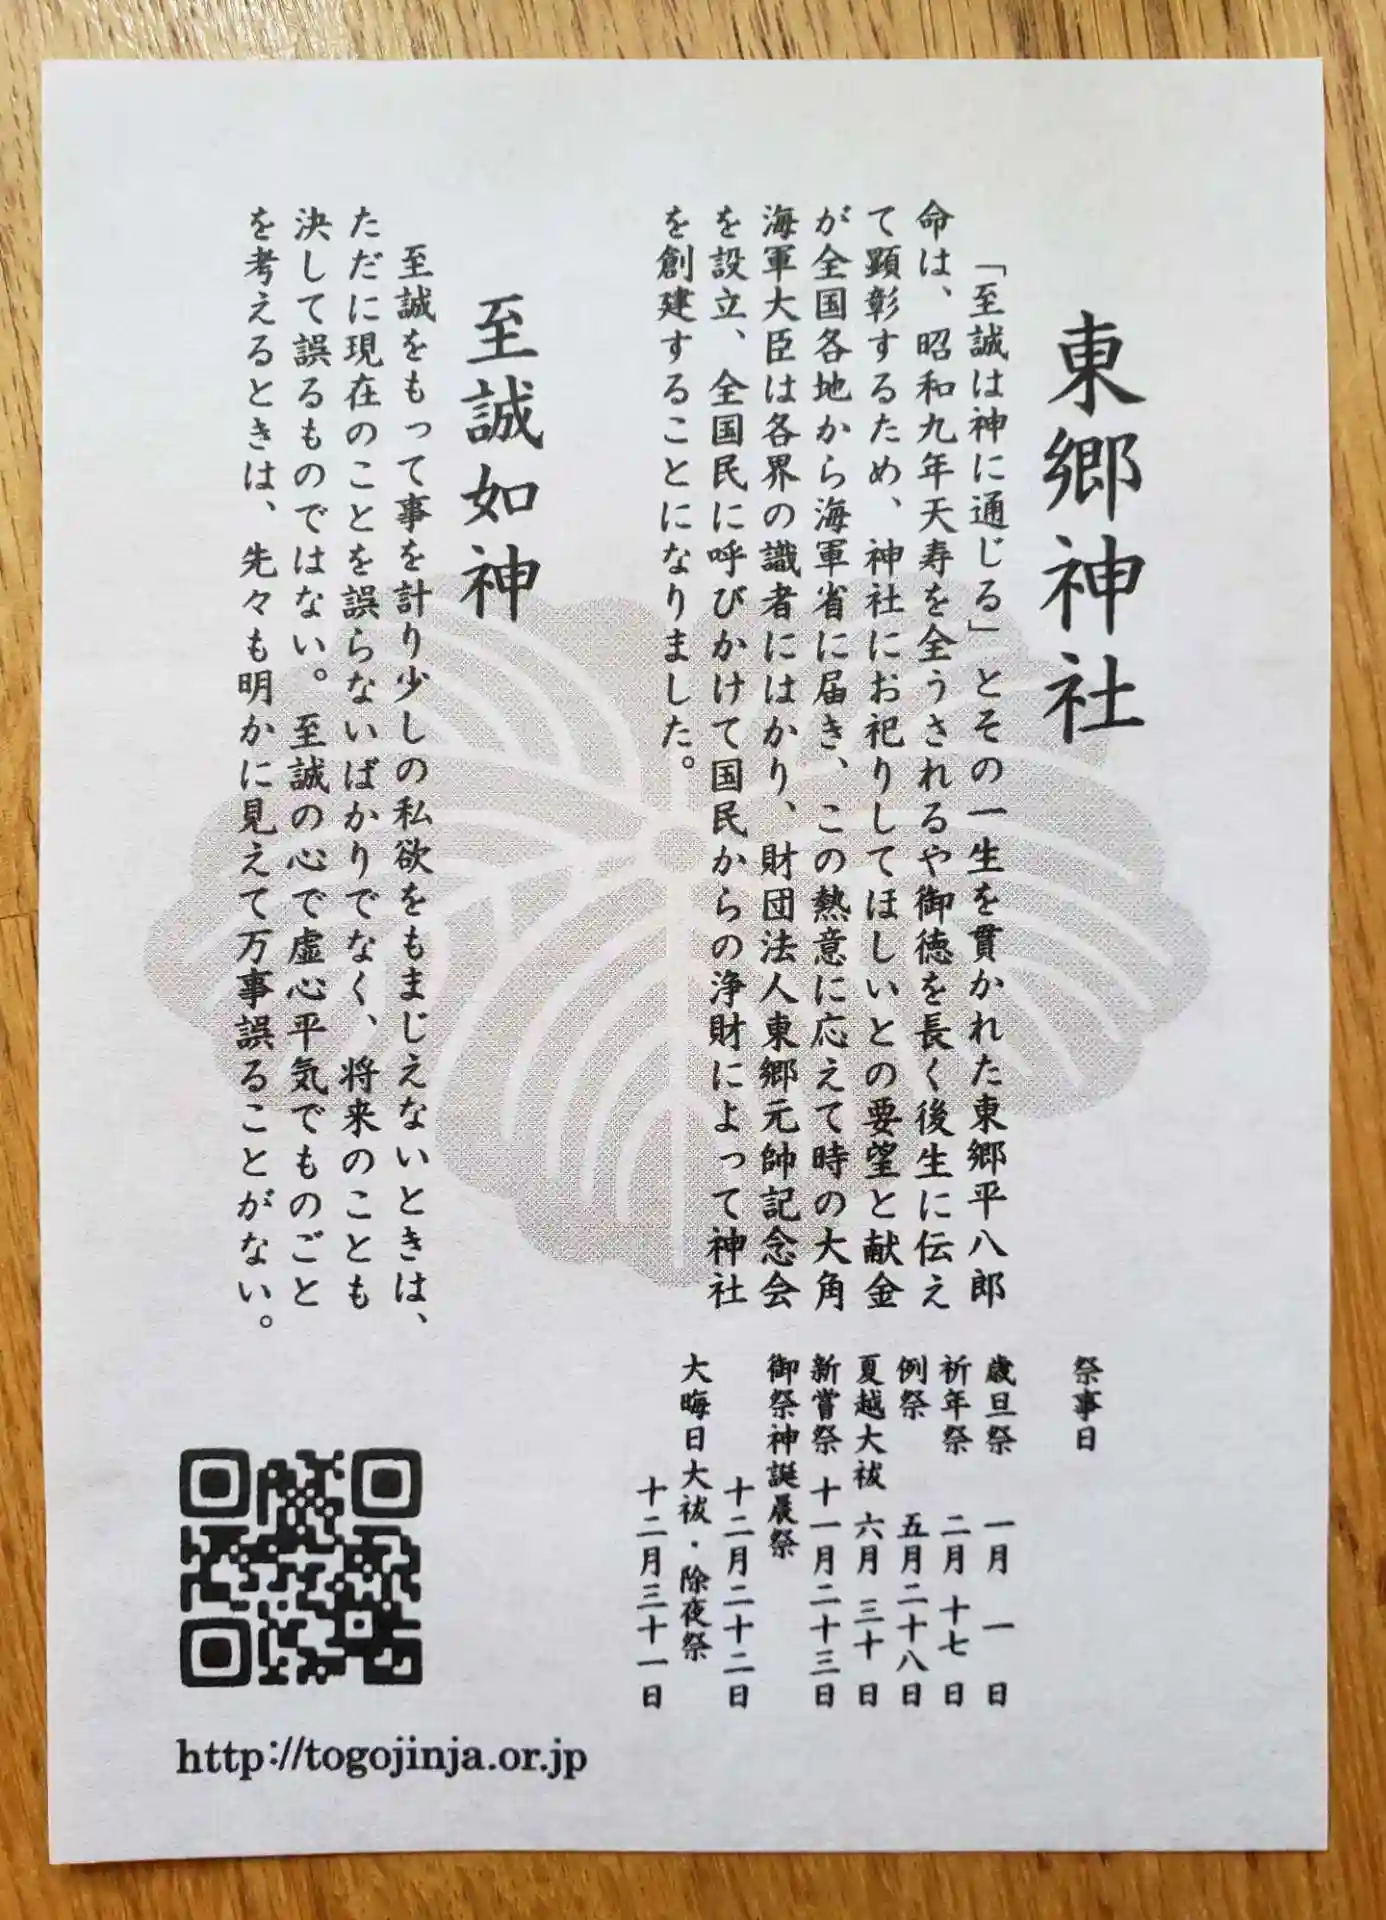 東郷神社
「至誠は神に通じる」とその一生を貫かれた東郷平八郎
命は、昭和九年天寿を全うされるや御徳を長く後生に伝え
て顕彰するため、神社にお祀りしてほしいとの要望と献金
が全国各地から海軍省に届き、この熱意に応えて時の大角
海軍大臣は各界の識者にはかり、財団法人東郷元帥記念会
を設立、全国民に呼びかけて国民からの浄財によって神社
を創建することになりました。
至誠如神
至誠をもって事を計り少しの私欲をもまじえないときは、
ただに現在のことを誤らないばかりでなく、将来のことも
決して誤るものではない。至誠の心で虚心平気でものごと
を考えるときは、先々も明かに見えて万事誤ることがない。
祭事日
歳旦祭 一月 一 日
祈年祭 二月 十七 日
例祭 五月二十八日
夏越大祓 六月 三十 日
新嘗祭 十一月二十三日
御祭神誕辰祭
十二月二十二日
大晦日大祓・除夜祭
十二月三十一日
http://togojinja.or.jp